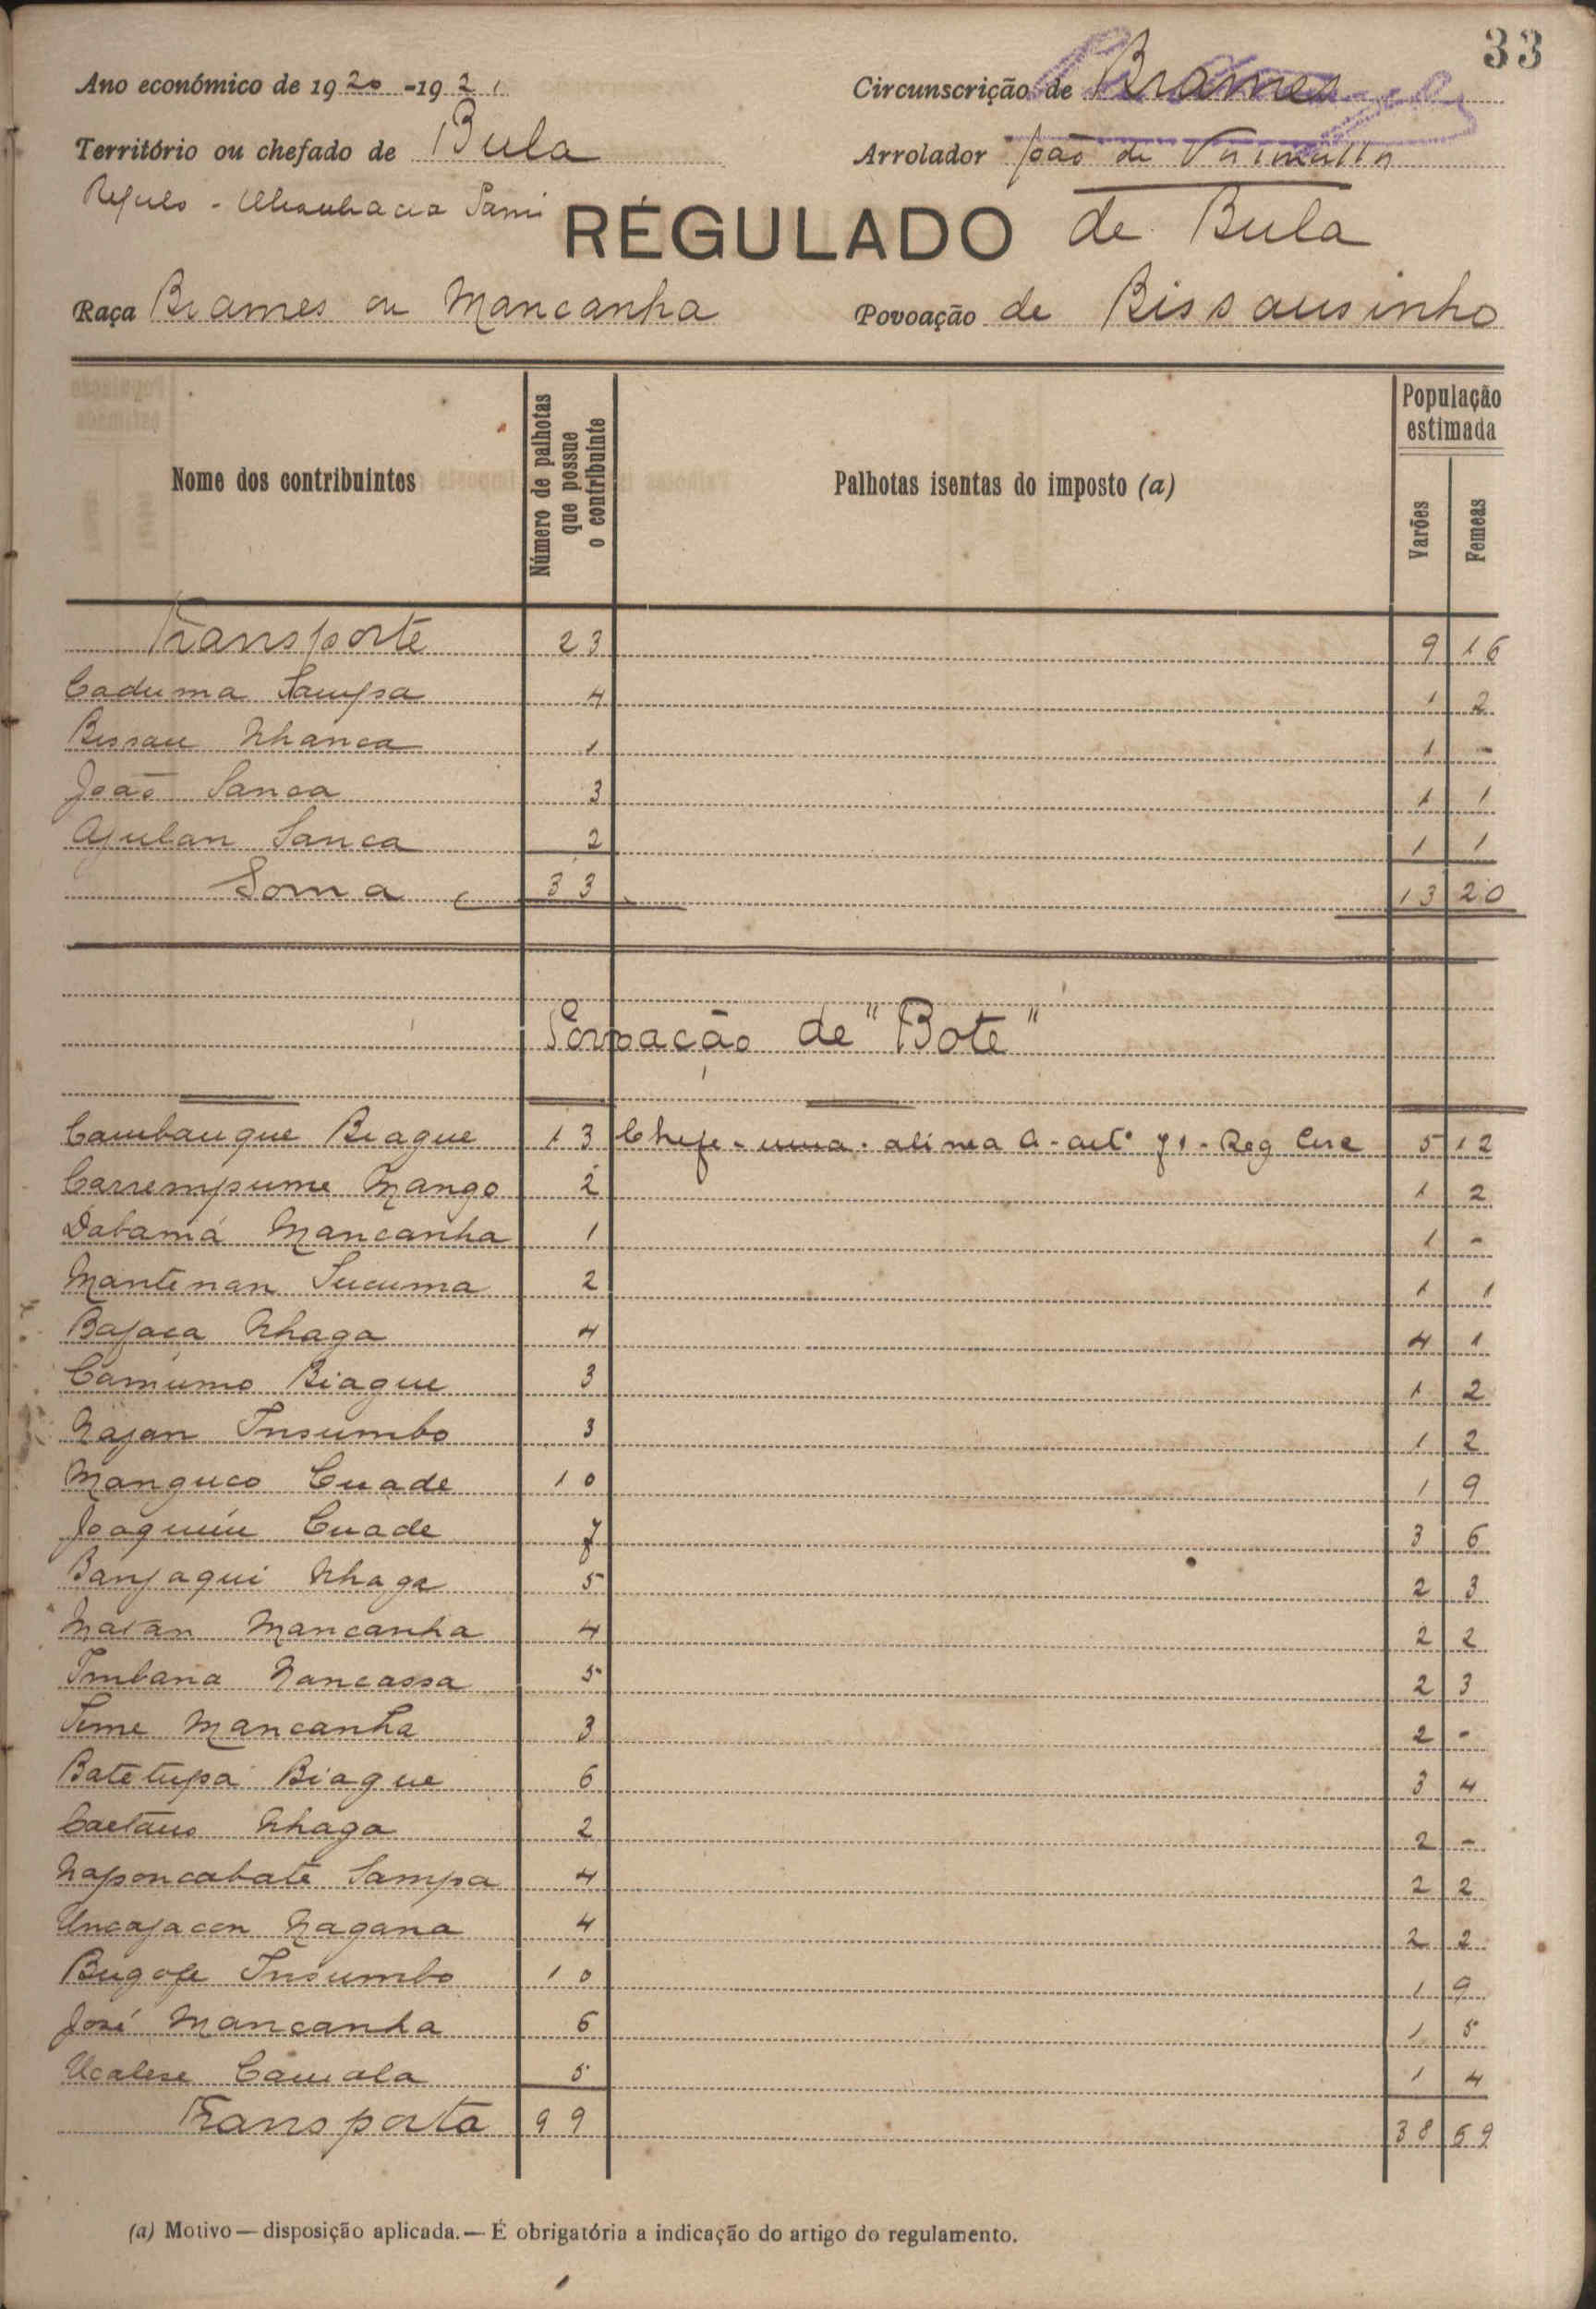 33
Ano económico de 1920-1921
Circunscrição de Brames
Território ou chefado de Bula
Arrolador João de
Regulo -
RÉGULADO de Bula
Raça Brames ou Mancanha
Povoação de Bissausinho
Nome dos contribuintes
Número de palhotas que possue o contribuinte
Palhotas isentas do imposto (a)
População estimada
Varões
Femeas
Transporte 23 9 16
Caduma Sampa 4 1 2
Bissau Nhanca 1 1 -
João Sanca 3 1 1
Ajulan Sanca 2 1 1
Soma 33 13 20
Povoação de "Bote"
Cambauque Biague 13 Chefe - uma. alinea A - artº 71 - Reg Circ 5 12
Carrempume Mango 2 1 2
Dabamá Mancanha 1 1 -
Mantenan Sucuma 2 1 1
Bajaca Nhaga 4 4 1
Camumo Biague 3 1 2
Najan Insumbo 3 1 2
Manguco Cuade 10 1 9
Joaquim Cuade 7 3 6
Banjaqui Nhaga 5 2 3
Matan Mancanha 4 2 2
Imbana Nancassa 5 2 3
Mancanha 3 2 -
Batetupa Biague 6 3 4
Caetano Nhaga 2 2 -
Naponcabate Sampa 4 2 2
Uncajacon Nagana 4 2 2
Bugofe Insumbo 10 1 9
José Mancanha 6 1 5
Ucalese Camala 5 1 4
Transporta 99 38 69
(a) Motivo — disposição aplicada. — É obrigatória a indicação do artigo do regulamento.